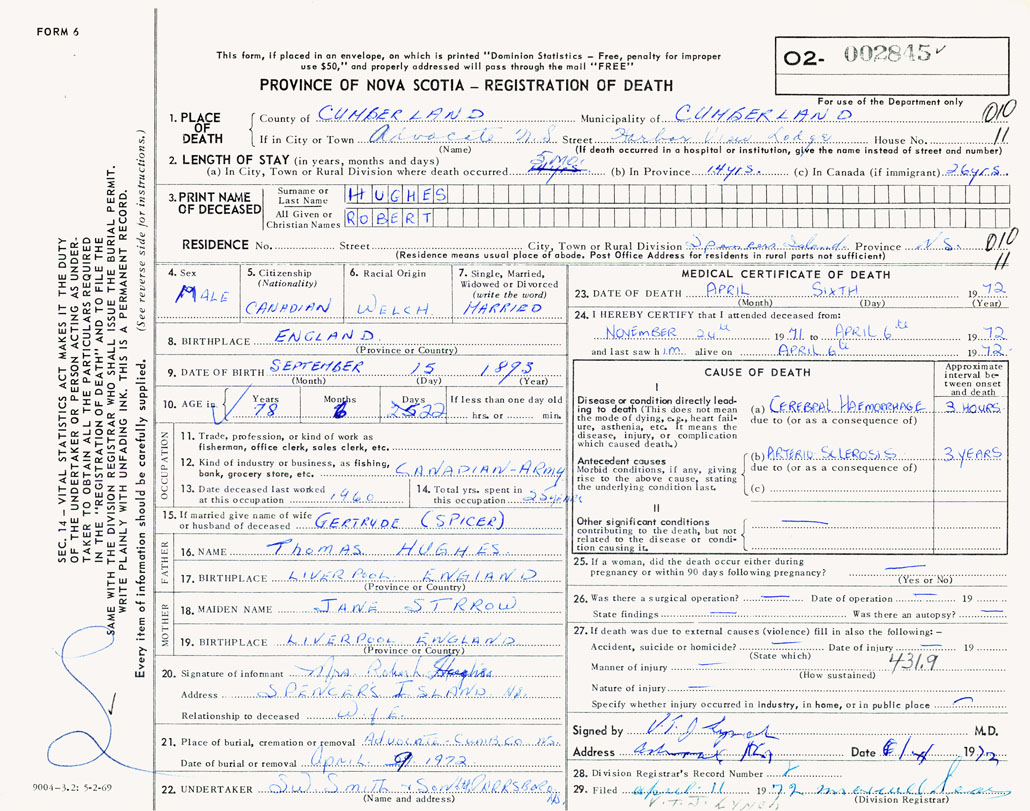 FORM 6
This form, if placed in an envelope, on which is printed "Dominion Statistics — Free, penalty for improper
use $50," and properly addressed will pass through the mail "FREE"
PROVINCE OF NOVA SCOTIA — REGISTRATION OF DEATH
O2- 002845
For use of the Department only
1. PLACE OF DEATH
County of CUMBERLAND Municipality of CUMBERLAND 010
If in City or Town Advocate N.S Street Harbor View Lodge House No. 11
(Name) (If death occurred in a hospital or institution, give the name instead of street and number)
2. LENGTH OF STAY (in years, months and days)
(a) In City, Town or Rural Division where death occurred 5 Mo. (b) In Province 14yrs. (c) In Canada (if immigrant) 26yrs.
3. PRINT NAME OF DECEASED
Surname or Last Name HUGHES
All Given or Christian Names ROBERT
RESIDENCE No. Street City, Town or Rural Division Spencers Island Province N.S. 010
(Residence means usual place of abode. Post Office Address for residents in rural parts not sufficient) 11
4. Sex MALE
5. Citizenship (Nationality) CANADIAN
6. Racial Origin WELCH
7. Single, Married, Widowed or Divorced (write the word) MARRIED
8. BIRTHPLACE ENGLAND
(Province or Country)
9. DATE OF BIRTH SEPTEMBER 15 1893
(Month) (Day) (Year)
10. AGE in Years 78 Months 6 Days 22 If less than one day old
hrs. or min.
OCCUPATION
11. Trade, profession, or kind of work as
fisherman, office clerk, sales clerk, etc.
12. Kind of industry or business, as fishing,
bank, grocery store, etc. CANADIAN-ARMY
13. Date deceased last worked
at this occupation 1960
14. Total yrs. spent in
this occupation 25 years
15. If married give name of wife
or husband of deceased GERTRUDE (SPICER)
FATHER
16. NAME THOMAS HUGHES
17. BIRTHPLACE LIVERPOOL ENGLAND
(Province or Country)
MOTHER
18. MAIDEN NAME JANE STRROW
19. BIRTHPLACE LIVERPOOL ENGLAND
(Province or Country)
20. Signature of informant Mrs. Robert Hughes
Address SPENCERS ISLAND NS.
Relationship to deceased WIFE
21. Place of burial, cremation or removal ADVOCATE-CUMB.CO NS.
Date of burial or removal April 9 1972
22. UNDERTAKER S.W. Smith & Son PARRSBORO, NS
(Name and address)
MEDICAL CERTIFICATE OF DEATH
23. DATE OF DEATH APRIL SIXTH 1972
(Month) (Day) (Year)
24. I HEREBY CERTIFY that I attended deceased from:
NOVEMBER 24th 1971 to APRIL 6th 1972
and last saw him alive on APRIL 6th 1972.
CAUSE OF DEATH
Approximate interval between onset and death
I
Disease or condition directly leading to death (This does not mean the mode of dying, e.g., heart failure, asthenia, etc. It means the disease, injury, or complication which caused death.)
(a) CEREBRAL HAEMORRHAGE 3 HOURS
due to (or as a consequence of)
Antecedent causes
Morbid conditions, if any, giving rise to the above cause, stating the underlying condition last.
(b) ARTERIO SCLEROSIS 3 YEARS
due to (or as a consequence of)
(c)
II
Other significant conditions
contributing to the death, but not related to the disease or condition causing it.
25. If a woman, did the death occur either during
pregnancy or within 90 days following pregnancy?
(Yes or No)
26. Was there a surgical operation? Date of operation 19
State findings Was there an autopsy?
27. If death was due to external causes (violence) fill in also the following:—
Accident, suicide or homicide? Date of injury 19
(State which) 431.9
Manner of injury
(How sustained)
Nature of injury
Specify whether injury occurred in industry, in home, or in public place
Signed by V.T.J. Lynch M.D.
Address Date 1972
28. Division Registrar's Record Number
29. Filed April 11 1972
V.T.J. LYNCH (Division Registrar)
SEC. 14 — VITAL STATISTICS ACT MAKES IT THE DUTY
OF THE UNDERTAKER OR PERSON ACTING AS UNDER-
TAKER TO OBTAIN ALL THE PARTICULARS REQUIRED
IN THE "REGISTRATION OF DEATH" AND TO FILE THE
SAME WITH THE DIVISION REGISTRAR WHO SHALL ISSUE THE BURIAL PERMIT.
WRITE PLAINLY WITH UNFADING INK. THIS IS A PERMANENT RECORD.
Every item of information should be carefully supplied. (See reverse side for instructions.)
9004-3.2: 5-2-69